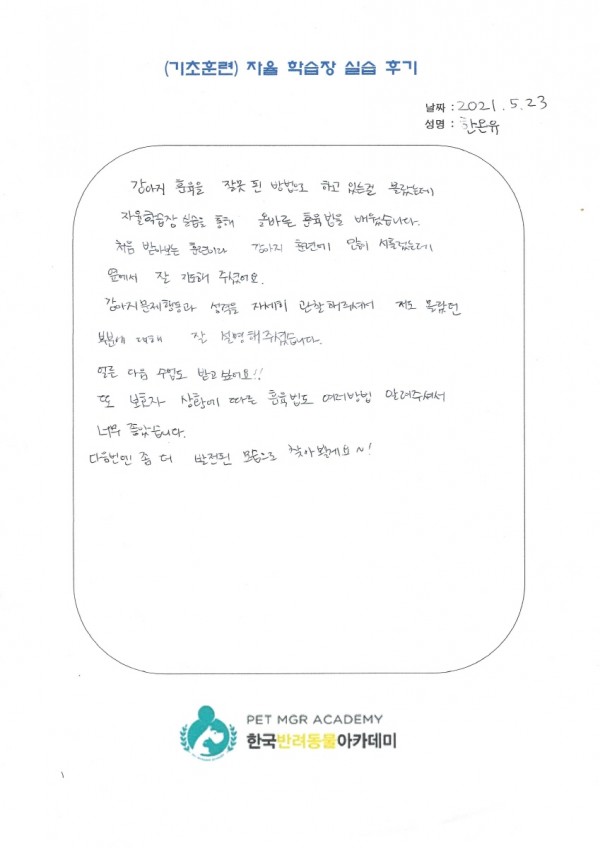 (기초훈련) 자율 학습장 실습 후기
날짜 : 2021. 5. 23
성명 : 한온유
강아지 훈육을 잘못 된 방법으로 하고 있는걸 몰랐는데
자율학습장 실습을 통해 올바른 훈육법을 배웠습니다.
처음 받아보는 훈련이라 강아지 훈련에 많이 서툴렀는데
옆에서 잘 지도해 주셨어요.
강아지문제행동과 성격을 자세히 관찰해주셔서 저도 몰랐던
부분에 대해 잘 설명해주셨습니다.
얼른 다음 수업도 받고싶어요!!
또 보호자 상황에 따른 훈육법도 여러방법 알려주셔서
너무 좋았습니다.
다음번엔 좀 더 발전된 모습으로 찾아뵐게요~!
PET MGR ACADEMY
한국반려동물아카데미